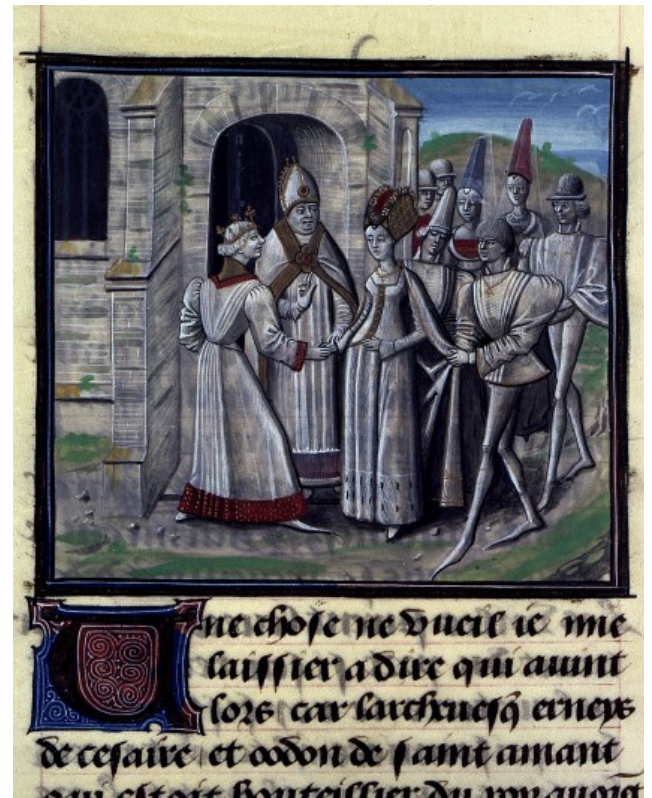 Une chose ne vueil ie mie
laissier a dire qui auint
lors car larcheuesq̄ erneys
de cesaire et oodon de saint amant
qui estoit bouteillier du roy auoiēt